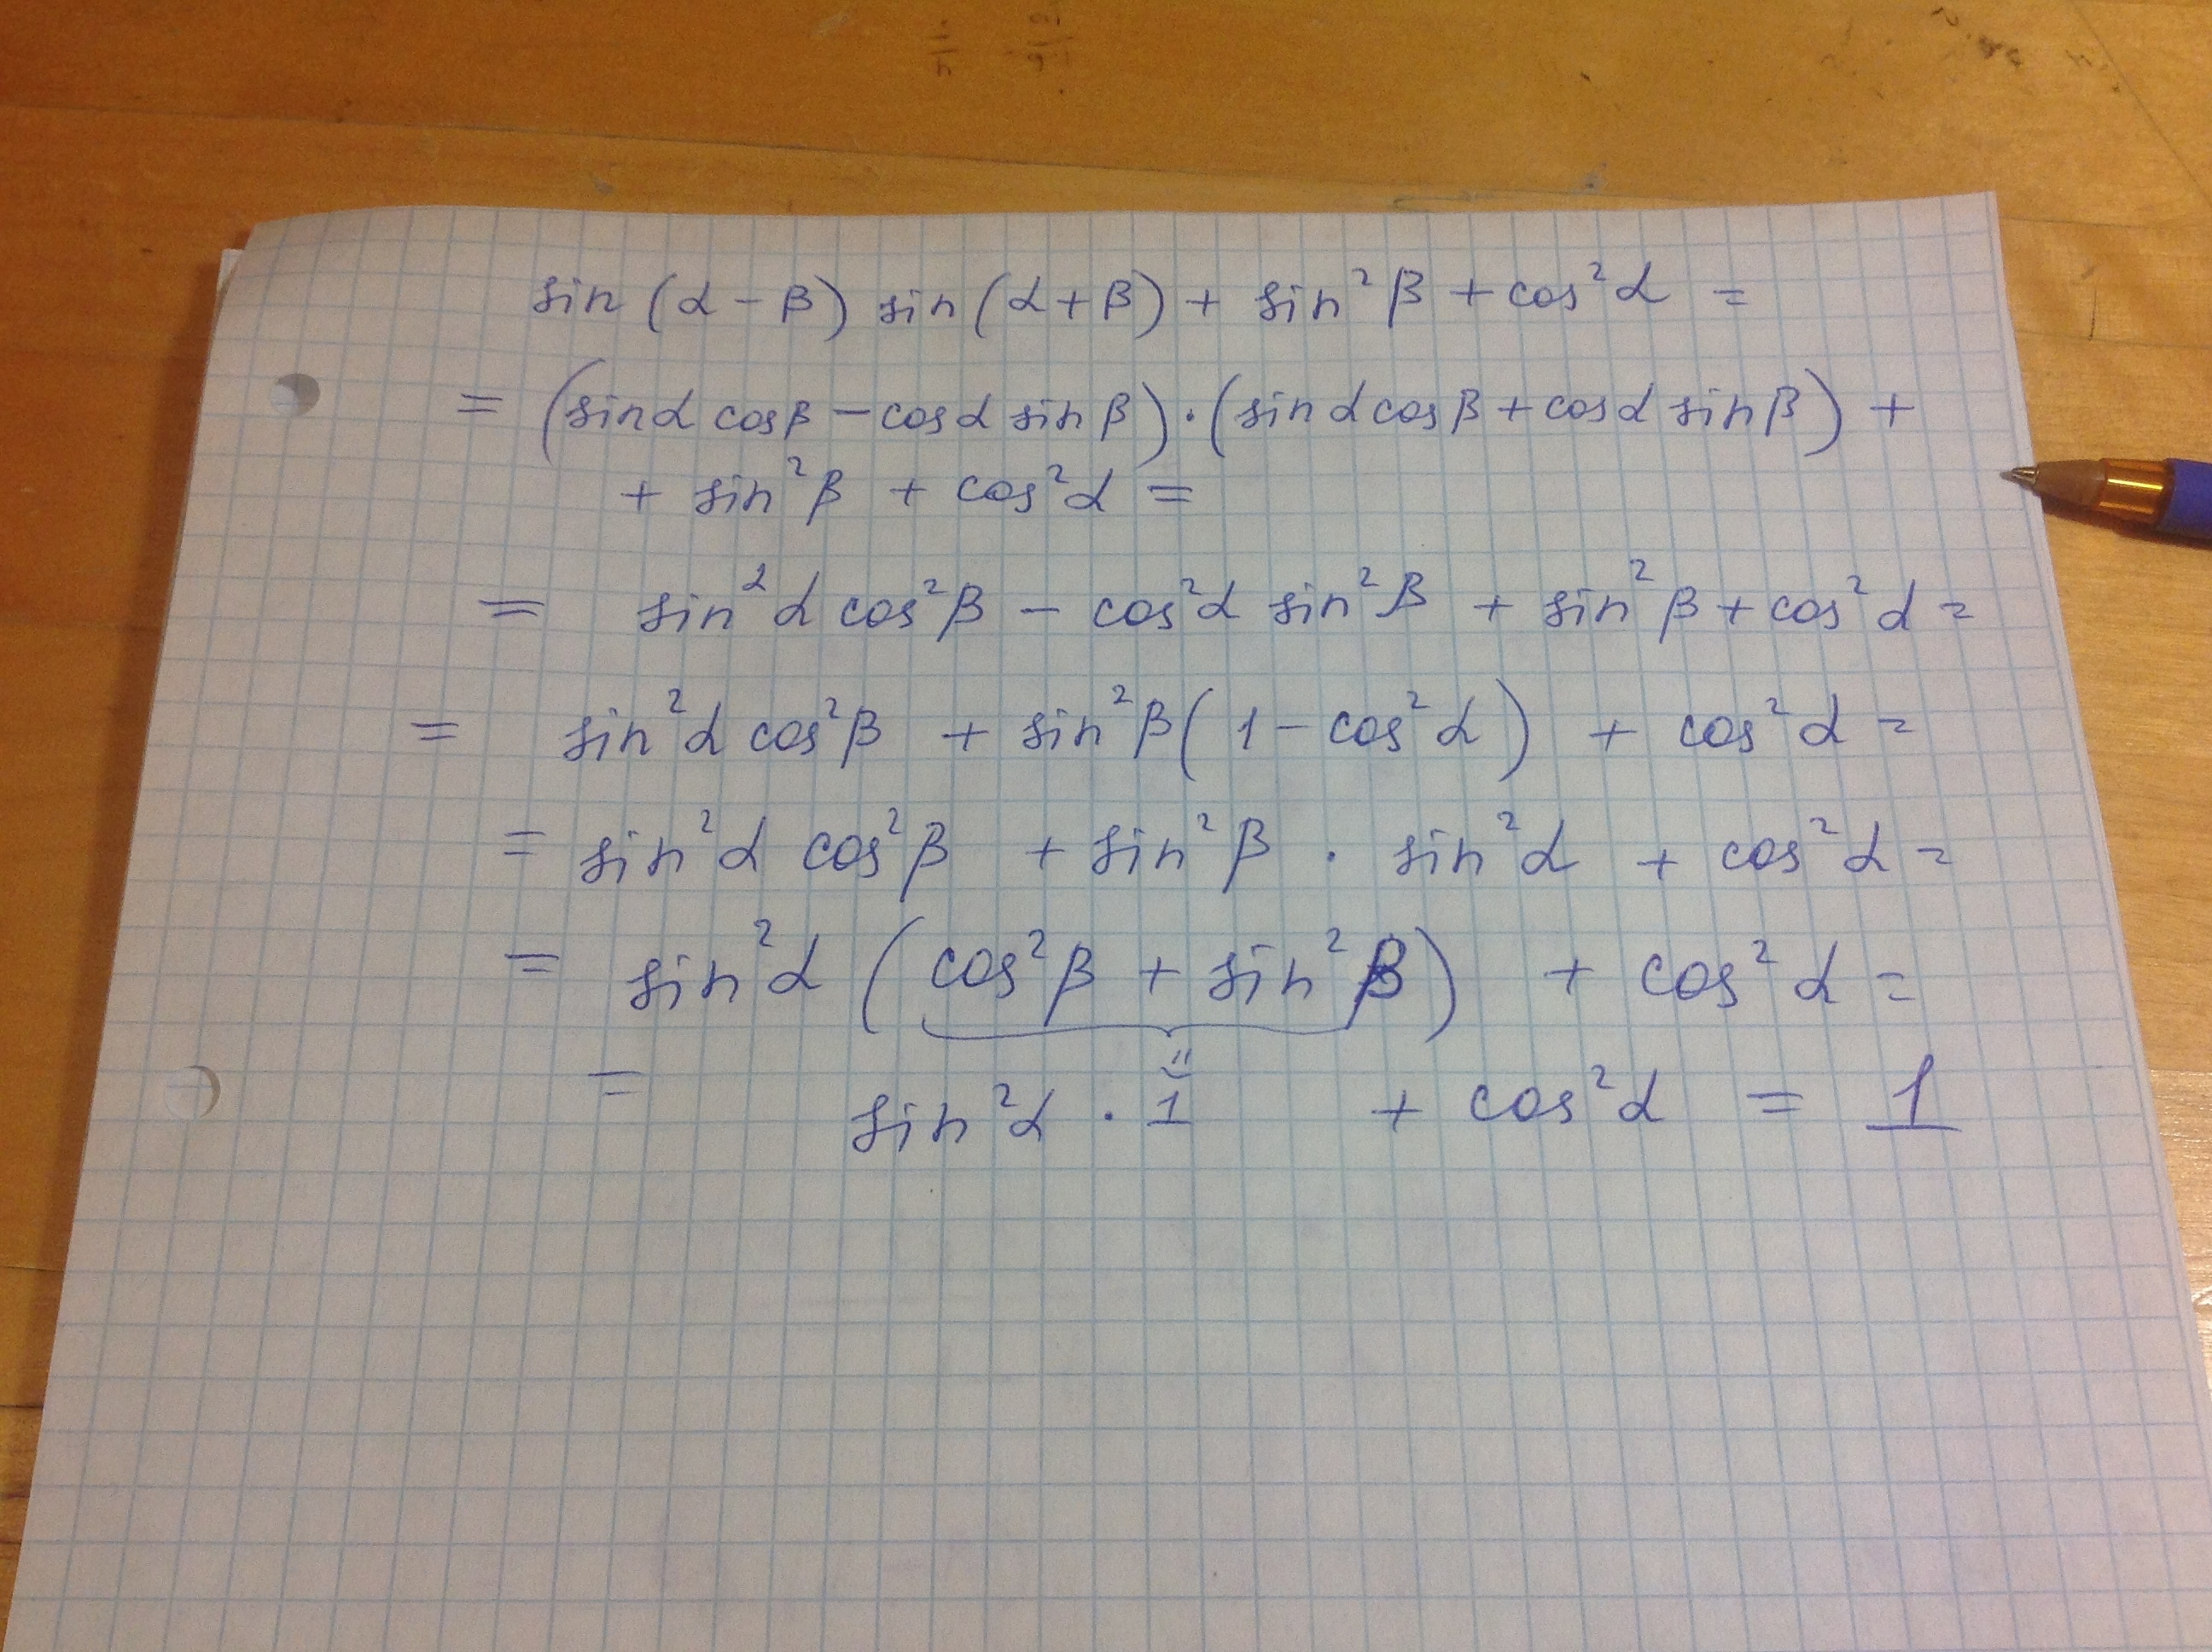 sin (α - β) sin (α + β) + sin²β + cos²α =
= (sinα cosβ - cosα sinβ) · (sinα cosβ + cosα sinβ) +
+ sin²β + cos²α =
= sin²α cos²β - cos²α sin²β + sin²β + cos²α =
= sin²α cos²β + sin²β (1 - cos²α) + cos²α =
= sin²α cos²β + sin²β · sin²α + cos²α =
= sin²α (cos²β + sin²β) + cos²α =
= sin²α · 1 + cos²α = 1